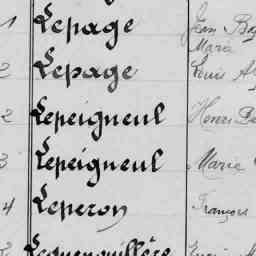 1 Lepage Jean
Marie
2 Lepage Louis
2 Lepeigneul Henri
3 Lepeigneul Marie
4 Leperon François
Lequenouillère